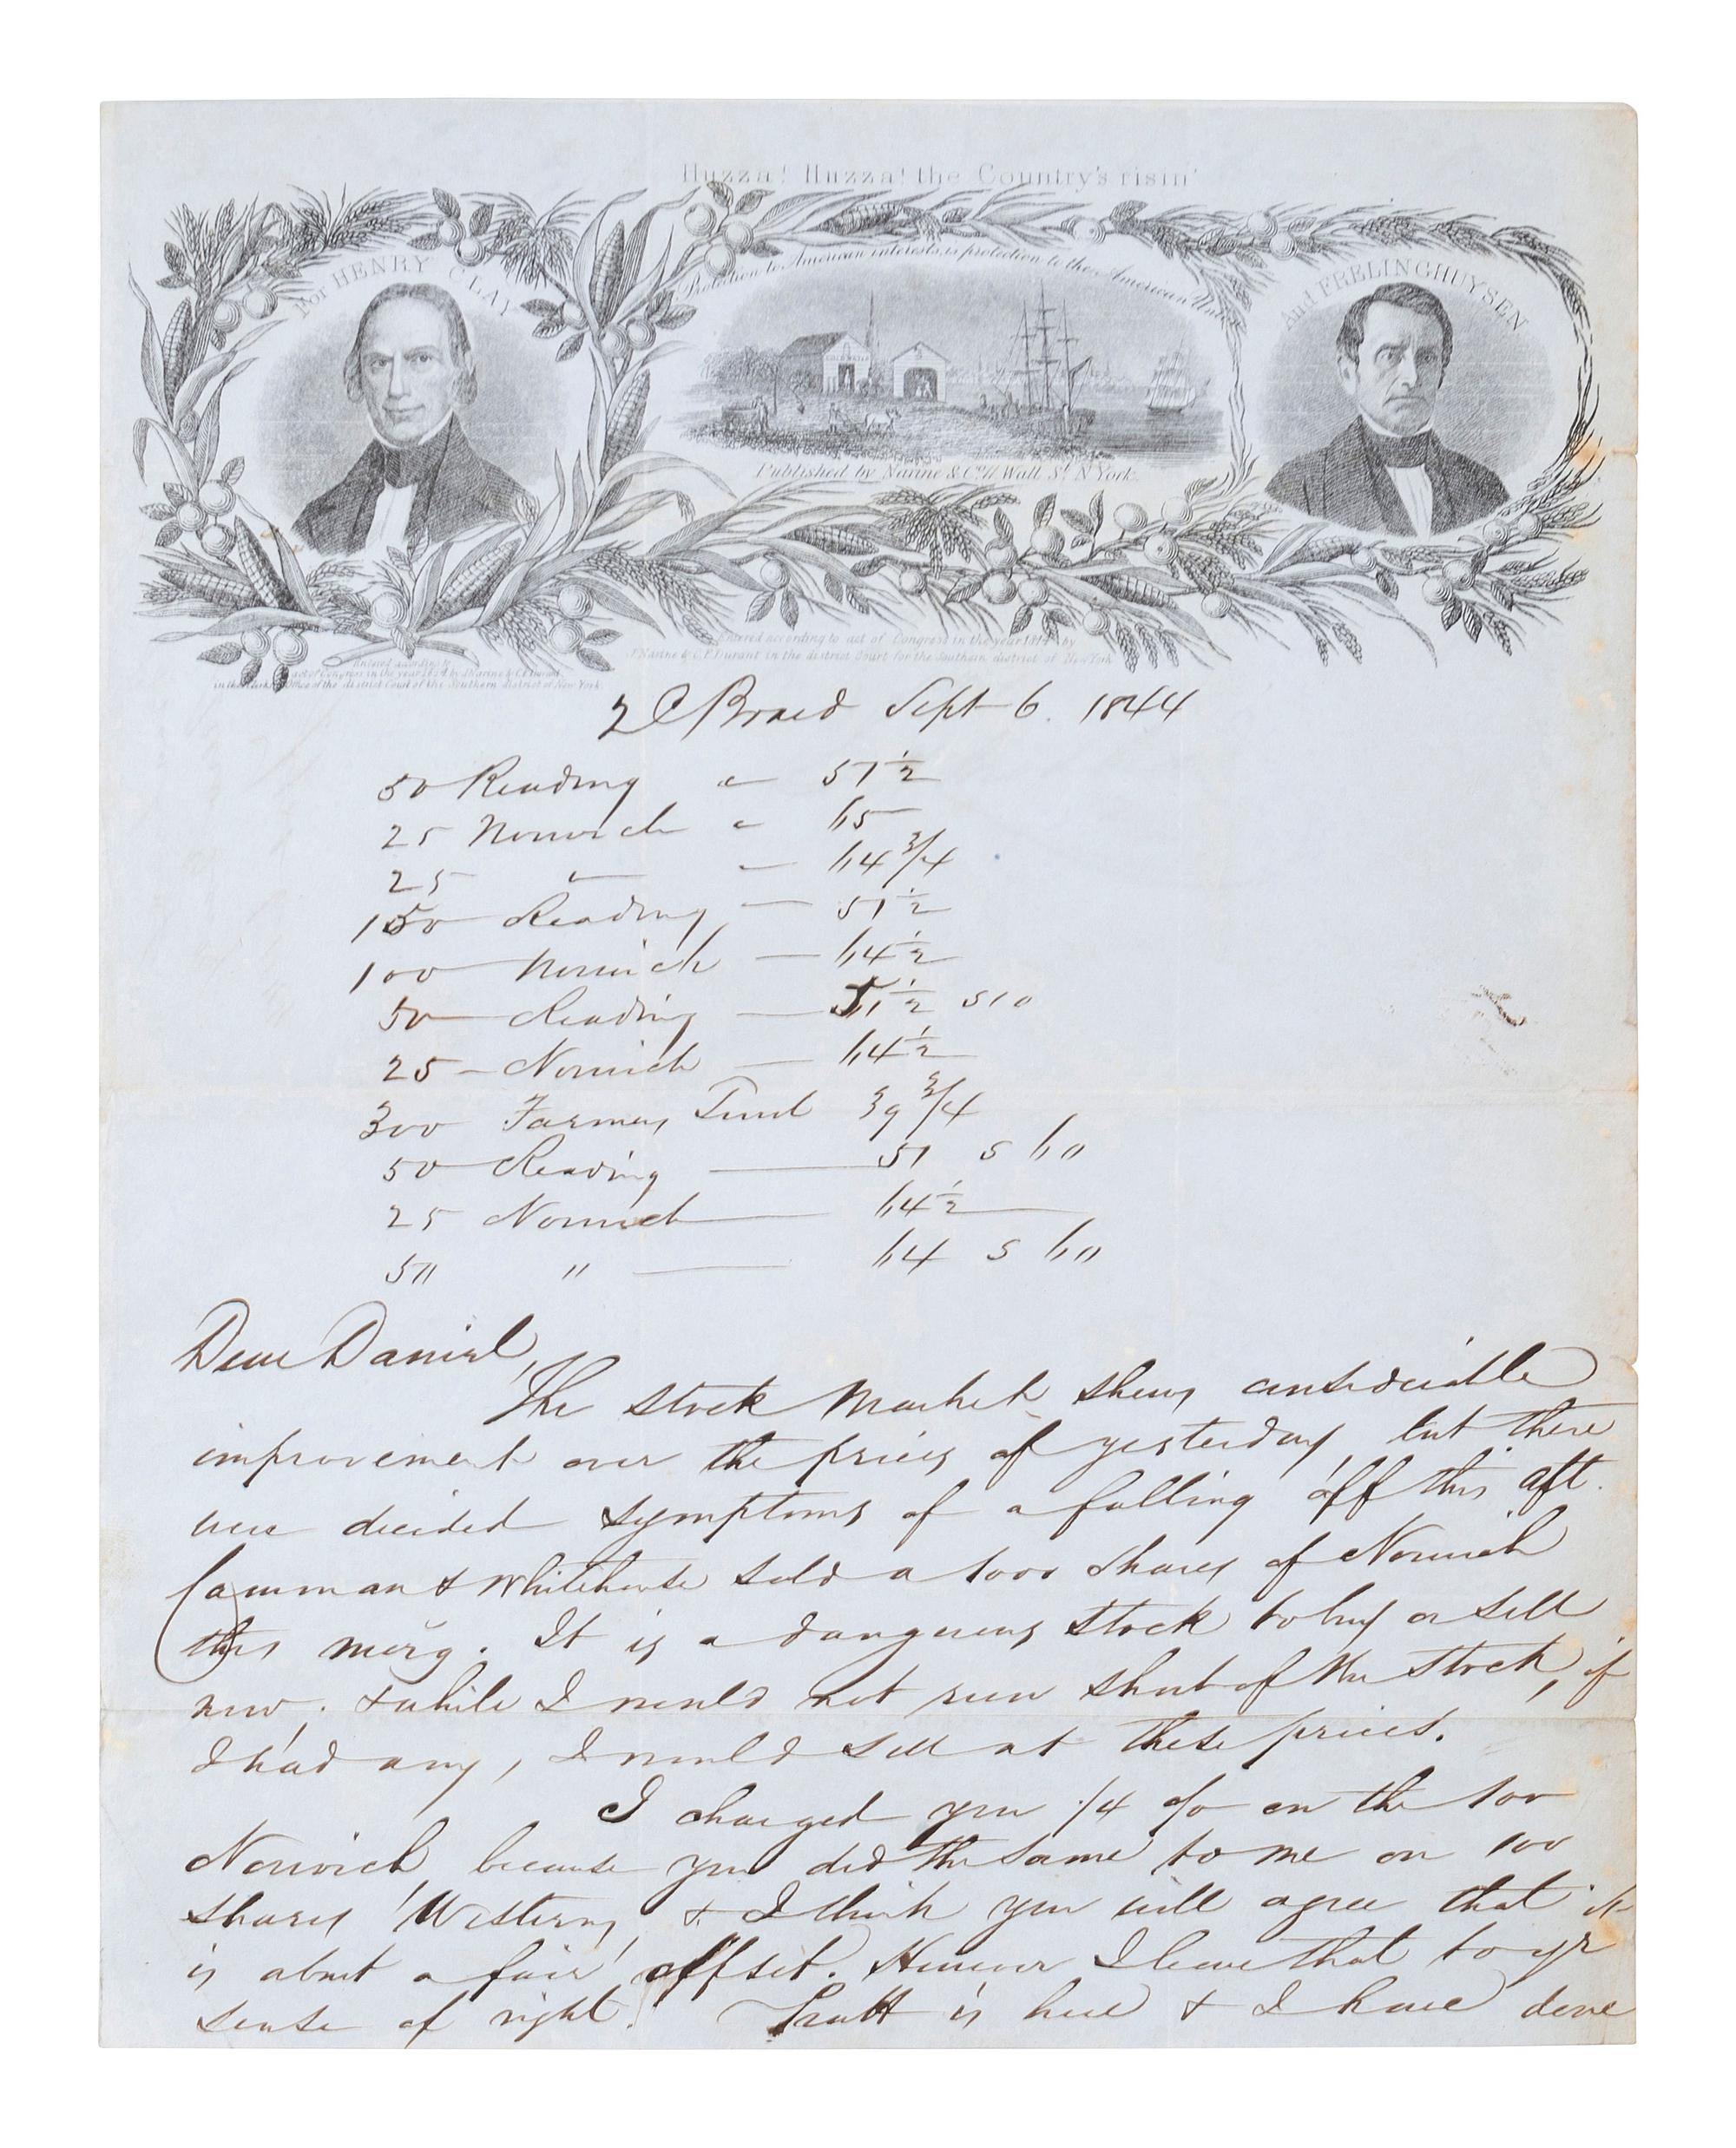 Huzza! Huzza! the Country's risin'
For HENRY CLAY
Protection to American interests, is protection to the American Union
And FRELINGHUYSEN
Published by Narine & Co. 11 Wall St. N York.
Entered according to act of Congress in the year 1844 by
J. Narine & C.F. Durant in the district Court for the Southern district of New York
Entered according to
act of Congress in the year 1844 by J. Narine & C.F. Durant
in the Clerk's Office of the district Court of the Southern district of New York
2 Board Sept 6. 1844
50 Reading " 51 1/2
25 Norwich " 65
25 " — 64 3/4
150 Reading — 51 1/2
100 Norwich — 64 1/2
50 Reading — 51 1/2 s10
25 – Norwich — 64 1/2
300 Farmers 39 3/4
50 Reading — 51 s 60
25 Norwich — 64 1/2
50 " — 64 s 60
Dear Daniel,
The stock Market shews considerable
improvement over the prices of yesterday, but there
were decided symptoms of a falling off this aft.
Camman & Whitehouse sold a 1000 shares of Norwich
this morg. It is a dangerous stock to buy or sell
now. & while I would not run short of the stock, if
I had any, I would sell at these prices.
I charged you 1/4 % on the 100
Norwich, because you did the same to me on 100
shares Western, & I think you will agree that it
is about a fair offset. However I leave that to yr
sense of right. Pratt is here & I have done